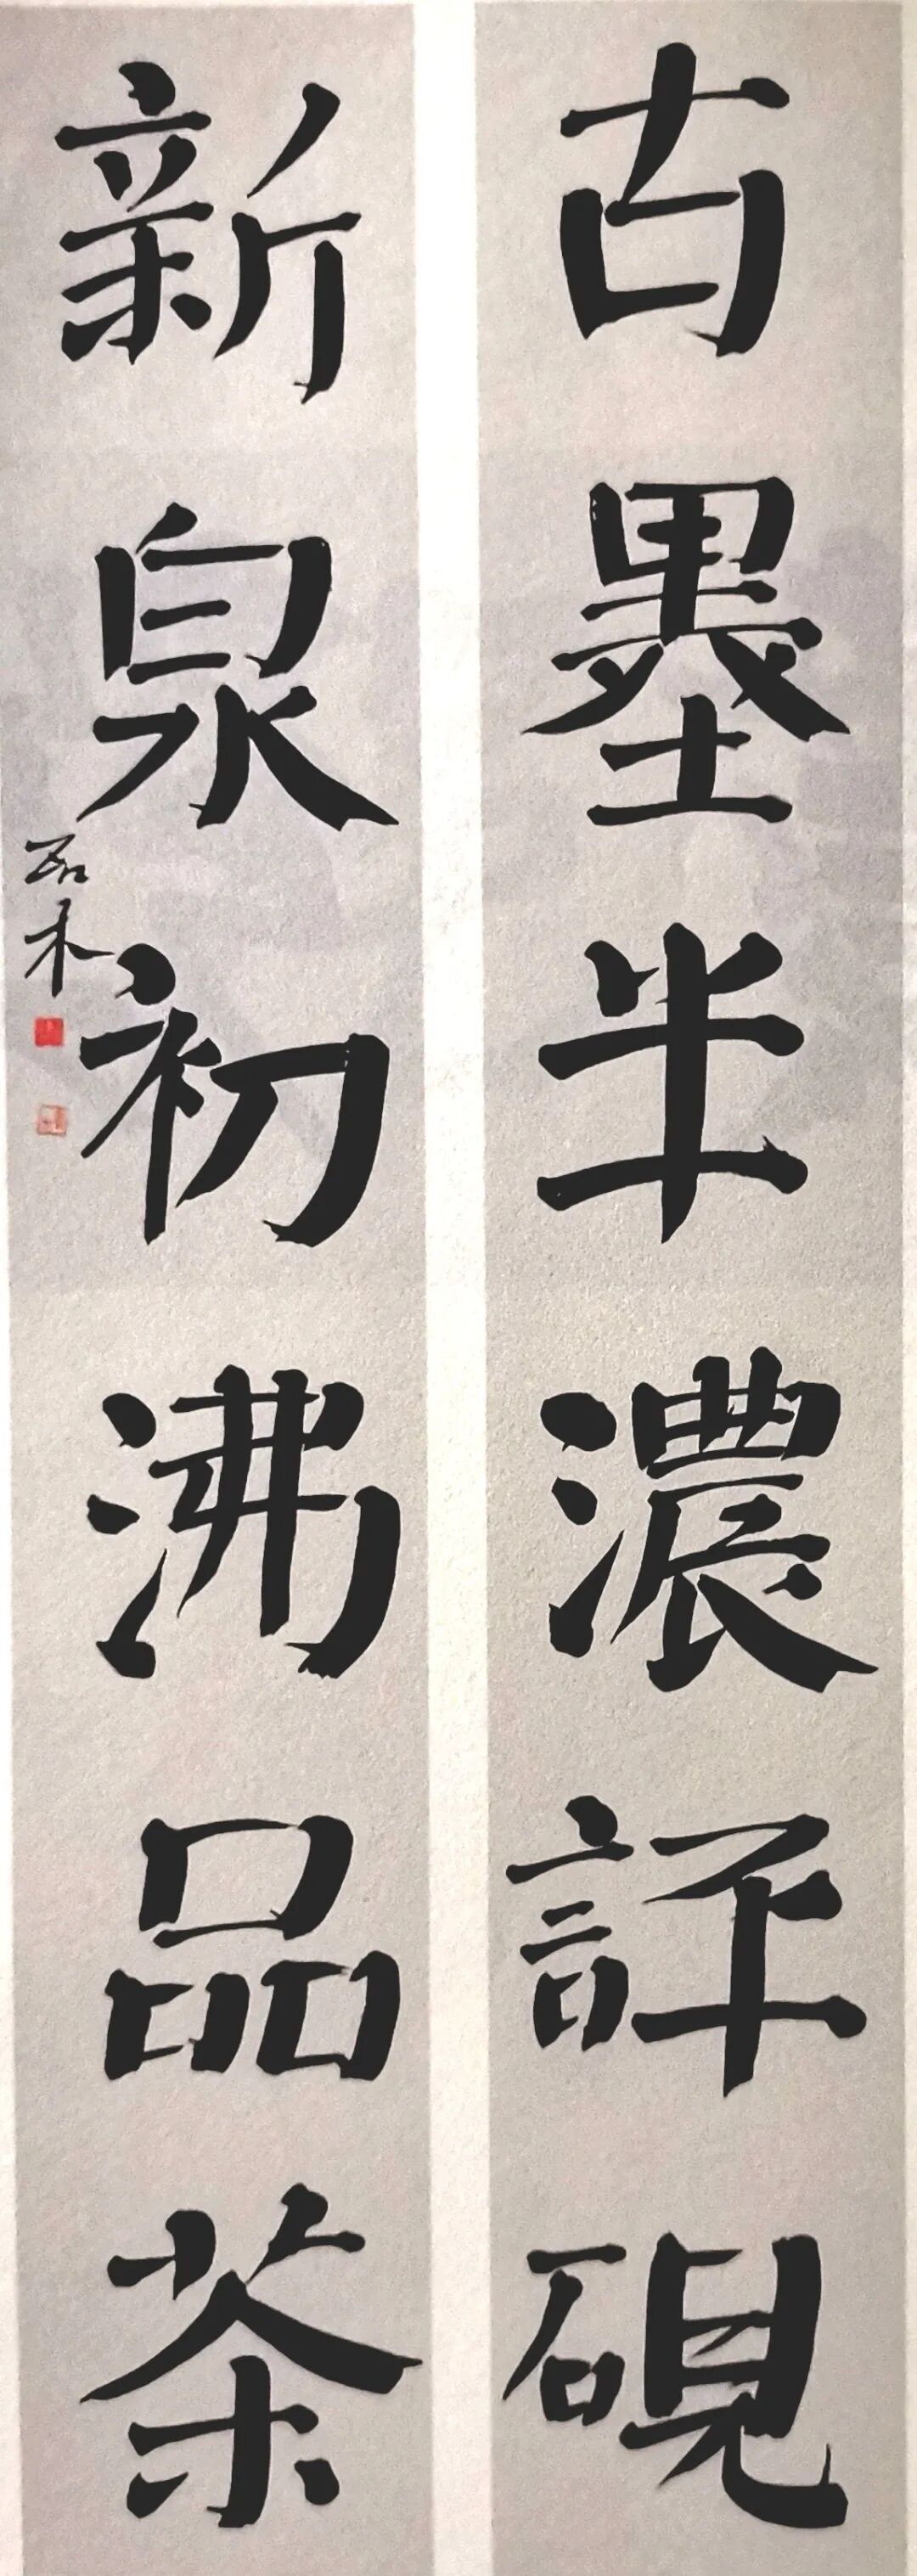 古墨半濃評硯
新泉初沸品茶